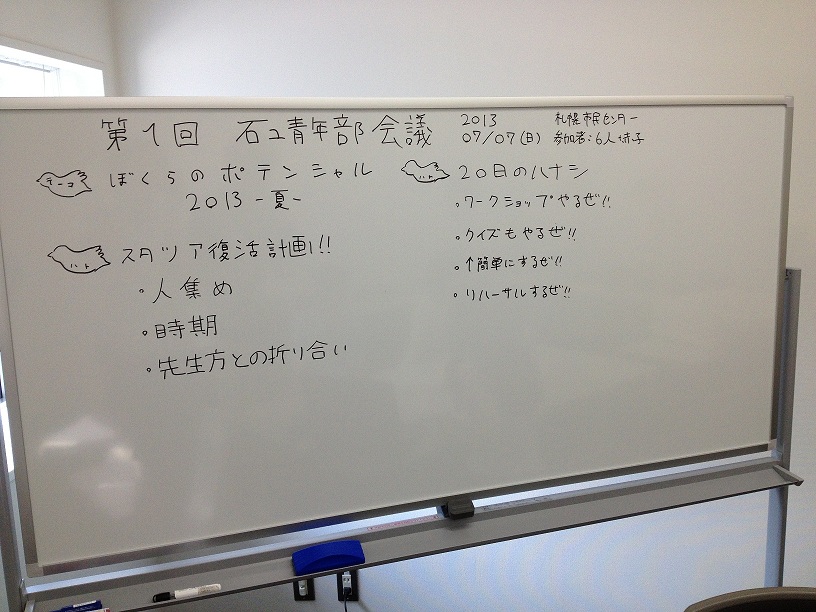 第1回 石ユ青年部会議
2013
07/07(日)
札幌市民センター
参加者:6人
テーマ
ぼくらのポテンシャル
2013-夏-
ハト
スタツア復活計画!!
・人集め
・時期
・先生方との折り合い
ハト
20日のハナシ
・ワークショップやるぜ!!
・クイズもやるぜ!!
・↑簡単にするぜ!!
・リハーサルするぜ!!